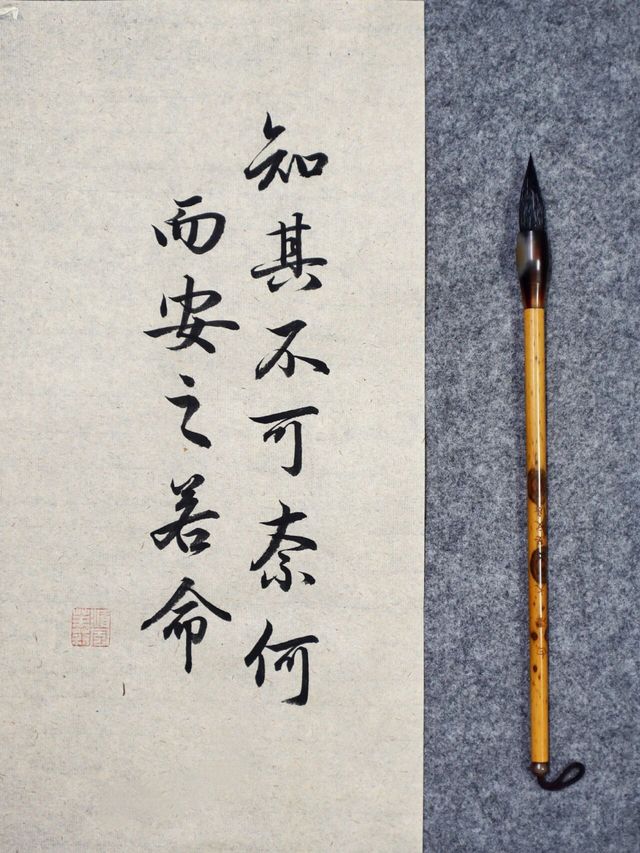 知其不可奈何
而安之若命